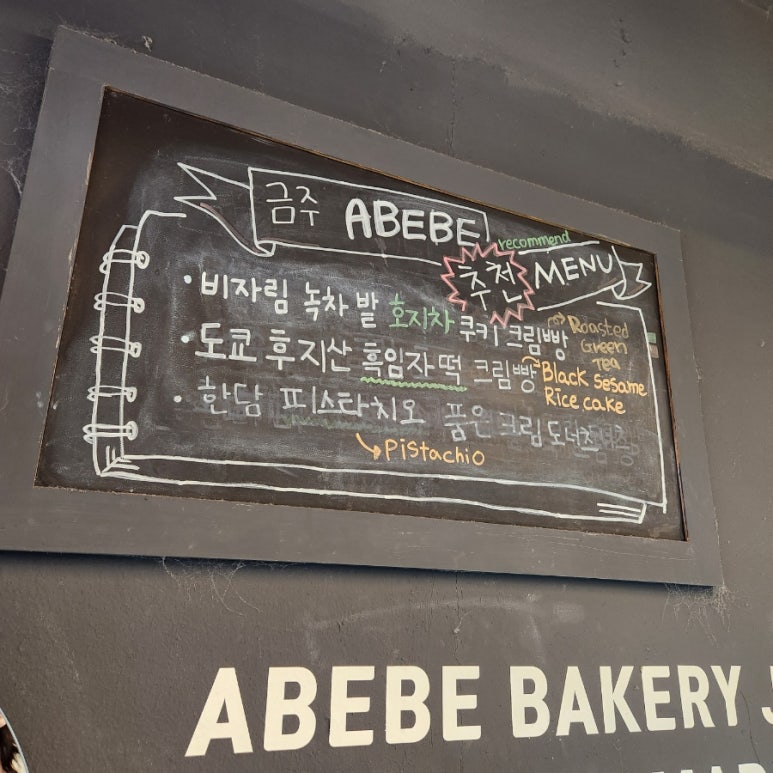 금주 ABEBE
recommend
추천 MENU
• 비자림 녹차 밭 호지차 쿠키 크림빵
Roasted
Green
Tea
• 도쿄 후지산 흑임자떡 크림빵
Black sesame
Rice cake
• 한담 피스타치오 품은 크림 도너츠
Pistachio
ABEBE BAKERY